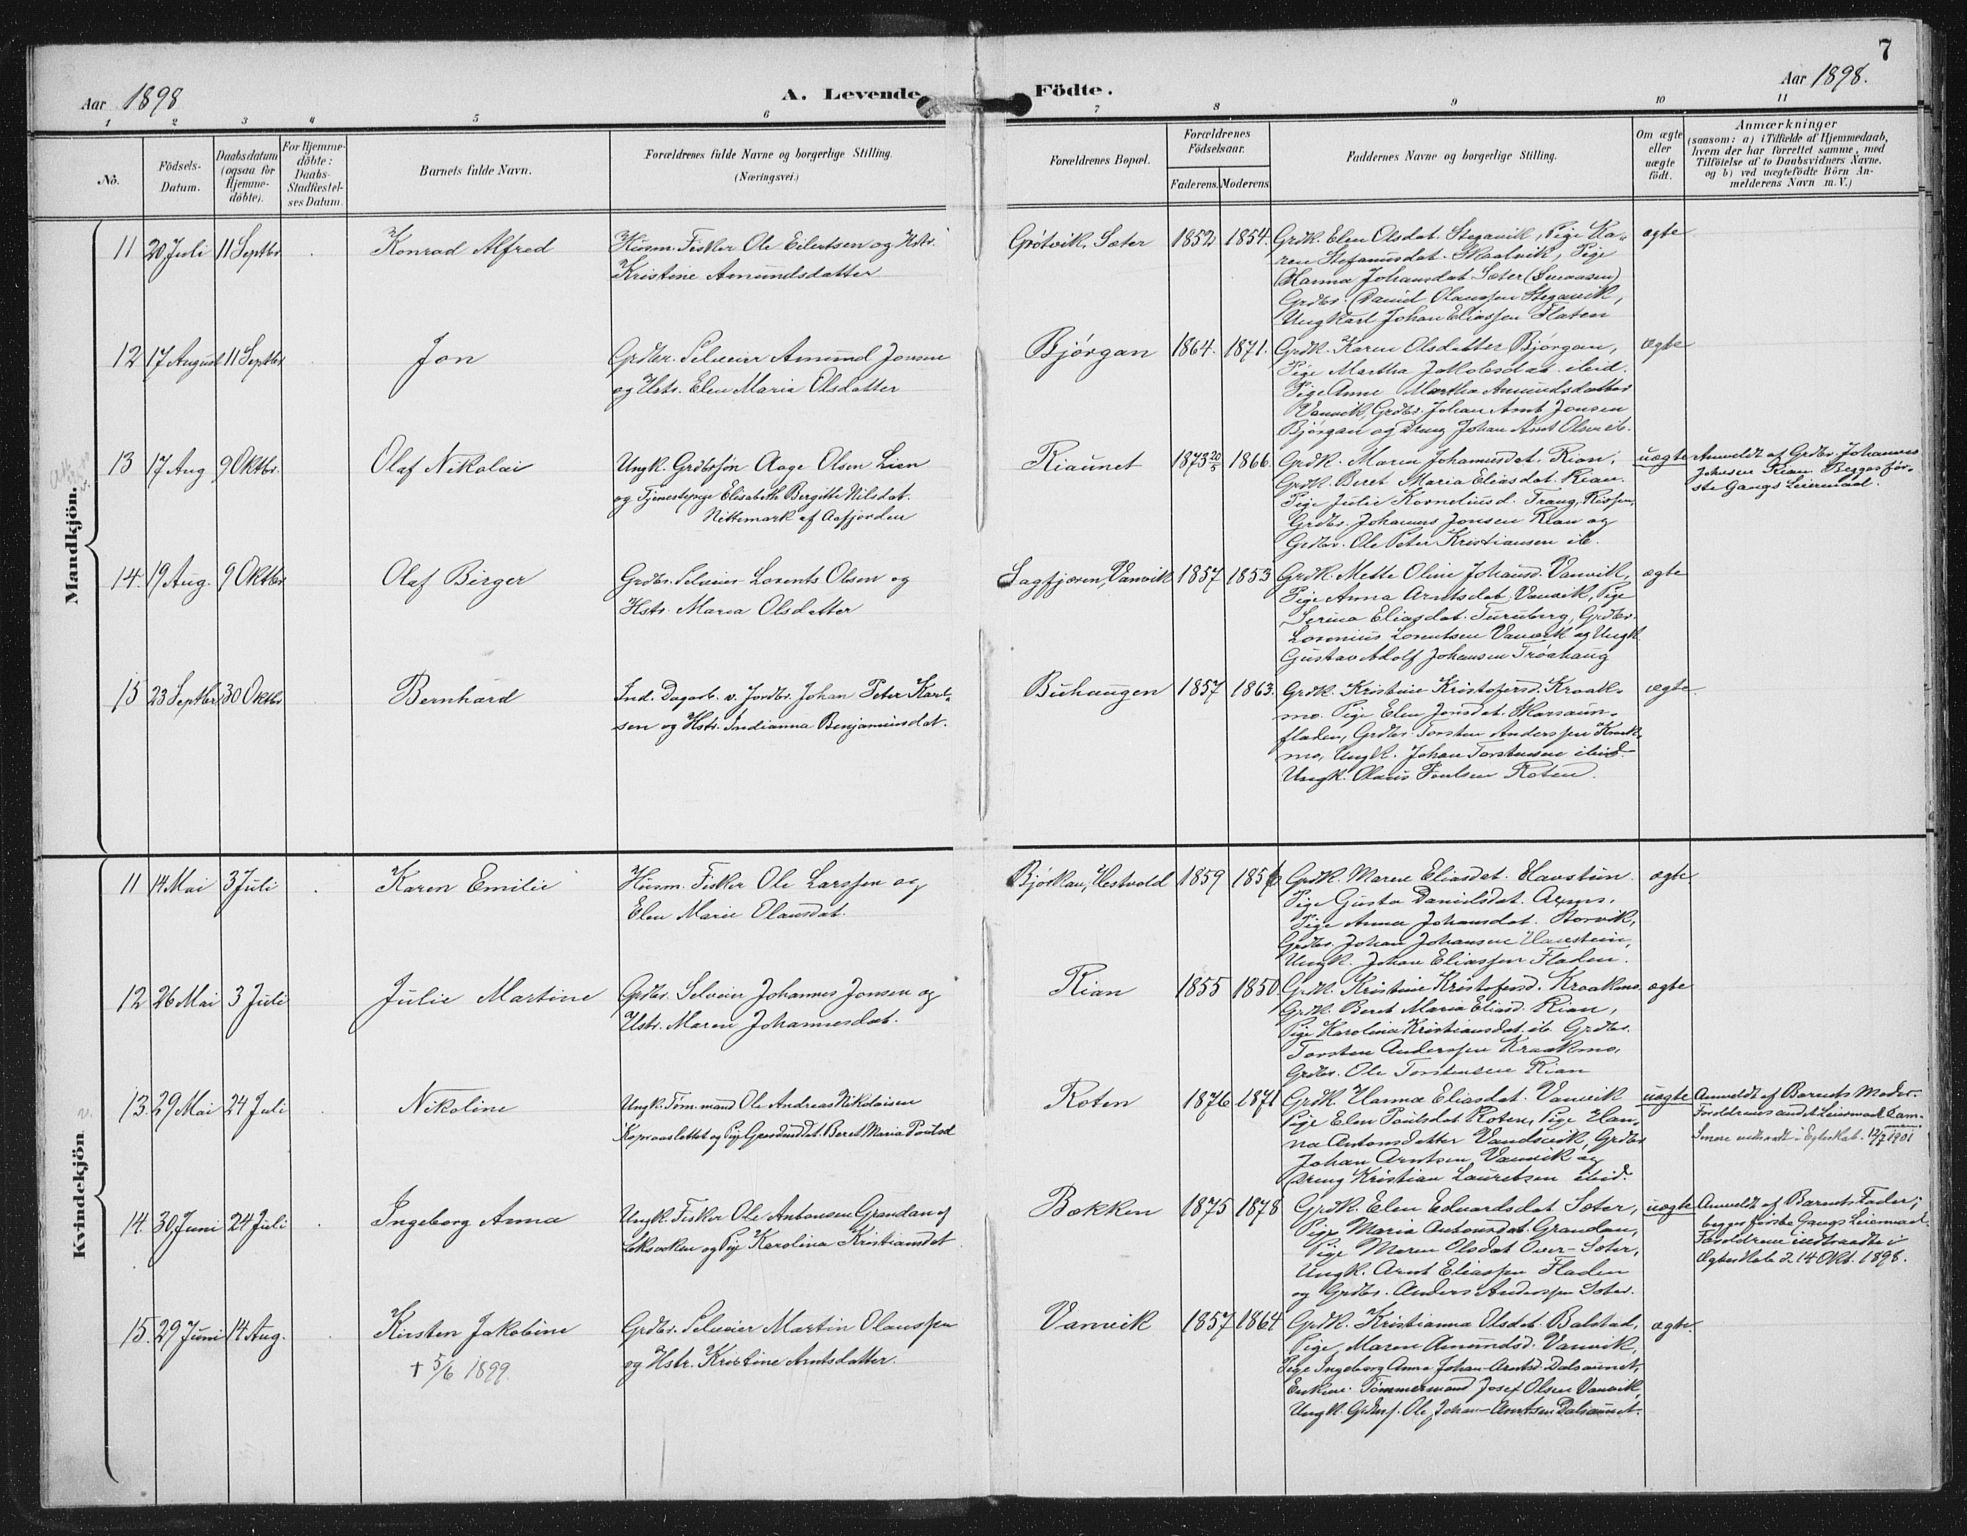 7
Aar 1898
A. Levende
Födte.
Aar 1898.
1 2 3 4 5 6 7 8 9 10 11
No.
Födsels-Datum.
Daabsdatum (ogsaa for Hjemme-döbte).
For Hjemme-döbte: Daabs-Stadfæstel-ses Datum.
Barnets fulde Navn.
Forældrenes fulde Navne og borgerlige Stilling.
(Næringsvei.)
Forældrenes Bopæl.
Forældrenes Födselsaar.
Faderens. Moderens.
Faddernes Navne og borgerlige Stilling.
Om ægte eller uægte födt.
Anmærkninger
(saasom: a) i Tilfælde af Hjemmedaab,
hvem der har forrettet samme, med
Tilföielse af to Daabsvidners Navne.
og b) ved uægtefödte Börn An-
melderens Navn m. V.)
Mandkjön.
11 20 Juli 11 Septbr. Konrad Alfred
Husm. Fisker Ole Eilertsen og Hstr.
Kristine Amundsdatter
Grøtvik, Sæter 1852 1854.
Grdk. Elen Olsdat. Stegavik, Pige Ka-
ren Stefanusdat. Maalvik, Pige
Hanna Johansdat. Sæter (Snaasen)
Grdbr. Daniel Olaussen Stegavik,
Ungkarl Johan Eliassen Fladen
ægte
12 17 August 11 Septbr. Jon
Grdbr. Selveier Amund Jonsen
og Hstr. Elen Maria Olsdatter
Bjørgan 1864. 1871.
Grdk. Karen Olsdatter Bjørgan,
Pige Martha Jakobsdat. ibid.
Pige Anne Martha Amundsdatter
Vanvik, Grdbr. Johan Arnt Jonsen
Bjørgan og Dreng Johan Arnt Olsen ib.
ægte
13 17 Aug 9 Oktbr. Olaf Nikolai
Ungk. Grdbrsøn Aage Olsen Lien
og Tjenestepige Elisabeth Bergitte Nilsdat.
Nittemark af Aafjorden
Riaunet 1873 20/5 1866.
Grdk. Maren Johannesdat. Rian,
Grdk. Beret Maria Eliasdat. Rian.
Pige Julie Korneliusd. Trang, Rissen,
Grdbr. Johannes Jonsen Rian og
Grdbr. Ole Peter Kristiansen ib.
uægte
Anmeldt af Grdbr. Johannes
Jonsen Rian. Begges før-
ste Gangs Leiermaal.
14. 19 Aug. 9 Oktbr. Olaf Birger
Grdbr. Selveier Lorents Olsen og
Hstr. Maren Olsdatter
Sagfjæren, Vanvik 1857 1853
Grdk. Mette Oline Johansd. Vanvik,
Pige Anna Arntsdat. Vanvik, Pige
Serina Eliasdat. Turnberg, Grdbr.
Lorenius Lorentsen Vanvik og Ungk.
Gustav Adolf Johansen Trøahaug
ægte
15 23 Septbr 30 Oktbr. Bernhard
Ind. Dagarb. v. Jordbr. Johan Peter Karl-
sen og Hstr. Indianna Benjaminsdat.
Buhaugen 1857 1863.
Grdk. Kristine Kristofersd. Kraak-
mo. Pige Elen Jonsdat.
fladen, Grdbr. Torsten Anderssen Kraak-
mo, Ungk. Johan Torstensen ibid
Ungk. Olaus Poulsen Roten.
ægte.
Kvindekjön
11 14 Mai 3 Juli Karen Emilie
Husm. Fisker Ole Larssen og
Elen Marie Olausdat.
Bjørkan, Hestvold 1859 1856
Grdk. Maren Eliasdat. Havstein.
Pige Gusta Danielsdat. Arms,
Pige Anna Johansdat. Storvik,
Grdbr. Johan Johansen Havstein,
Ungk. Johan Eliassen Fladen.
ægte.
12 26 Mai 3 Juli Julie Martine
Grdbr. Selveier Johannes Jonsen og
Hstr. Maren Johannesdat.
Rian 1855 1850
Grdk. Kristine Kristofersd. Kraakmo.
Grdk. Beret Maria Eliasd. Rian,
Pige Karolina Kristiansdat. ib. Grdbr.
Torsten Anderssen Kraakmo,
Grdbr. Ole Torstensen Rian
ægte
13. 29 Mai 24 Juli Nikoline
Ungk. Tøm.mand Ole Andreas Nikolaisen
Kopranslettet og Beret Maria Poulsd
Roten 1876 1871
Grdk. Hanna Eliasdat. Vanvik
Pige Elen Poulsdat Roten, Pige Han-
na Antonsdatter Vandvik, Grdbr
Johan Arntsen Vanvik og
Dreng Kristian Lauretsen ibid.
uægte
Anmeldt af Barnets Moder.
Forældrenes andet Leiermaal Sam-
men.
Senere indtraadt i Egteskab. 12/7 1901
14. 30 Juni 24 Juli Ingeborg Anna
Ungk. Fisker Ole Antonsen Grandan af
Leksviken og Pige Karolina Kristiansdat
Bakken 1875 1878
Grdk. Elen Edvardsdat Sæter,
Pige Maria Antonsdat. Grandan,
Pige Maren Olsdat Over-Sæter,
Ungk. Arnt Eliassen Fladen
og Grdbr. Anders Anderssen Sæter.
uægte
Anmeldt af Barnets Fader;
begges første Gangs Leiermaal.
Forældrene indtraadte i
Ægteskab d. 14 Okt. 1898.
15. 29 Juni 14 Aug. Kirsten Jakobine
† 5/6 1899.
Grdbr. Selveier Martin Olaussen
og Hstr. Kristine Arntsdatter.
Vanvik 1857 1864
Grdk. Kristianna Olsdat. Balstad,
Pige Maren Amundsd. Vanvik,
Pige Ingeborg Anna Johan-Arntsd. Dalsaunet,
Enkem. Tømmermand Josef Olsen Vanvik,
Ungk. Grdbrs. Ole Johan-Arntsen Dalsaunet.
ægte.